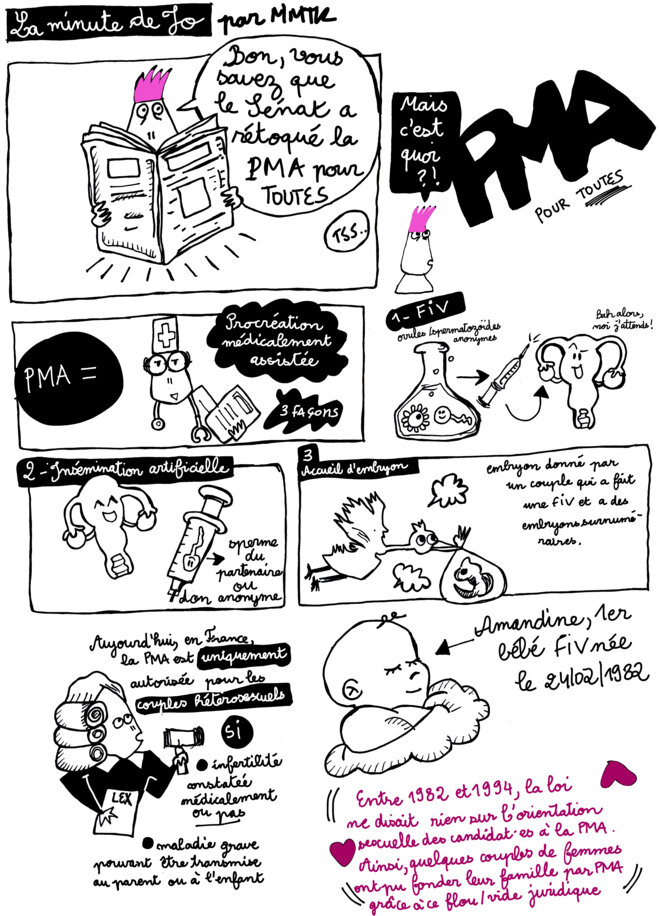 La minute de Jo par MMTK
Bon, vous
savez que
le Sénat a
rétoqué la
PMA pour
TOUTES
TSS..
Mais
c'est
quoi
?!
PMA
POUR TOUTES
PMA =
Procréation
médicalement
assistée
3 FAÇONS
1- FIV
ovules/spermatozoïdes
anonymes
Bah alors,
moi j'attends!
2- Insémination artificielle
sperme
du
partenaire
ou
don anonyme
3
Accueil d'embryon
embryon donné par
un couple qui a fait
une FIV et a des
embryons surnumé-
raires.
Aujourd'hui, en France,
la PMA est uniquement
autorisée pour les
couples hétérosexuels
si
LEX
• infertilité
constatée
médicalement
ou pas
• maladie grave
pouvant être transmise
au parent ou à l'enfant
Amandine, 1er
bébé FIV née
le 24/02/1982
Entre 1982 et 1994, la loi
ne disait rien sur l'orientation
sexuelle des candidat·es à la PMA.
Ainsi, quelques couples de femmes
ont pu fonder leur famille par PMA
grâce à ce flou/vide juridique